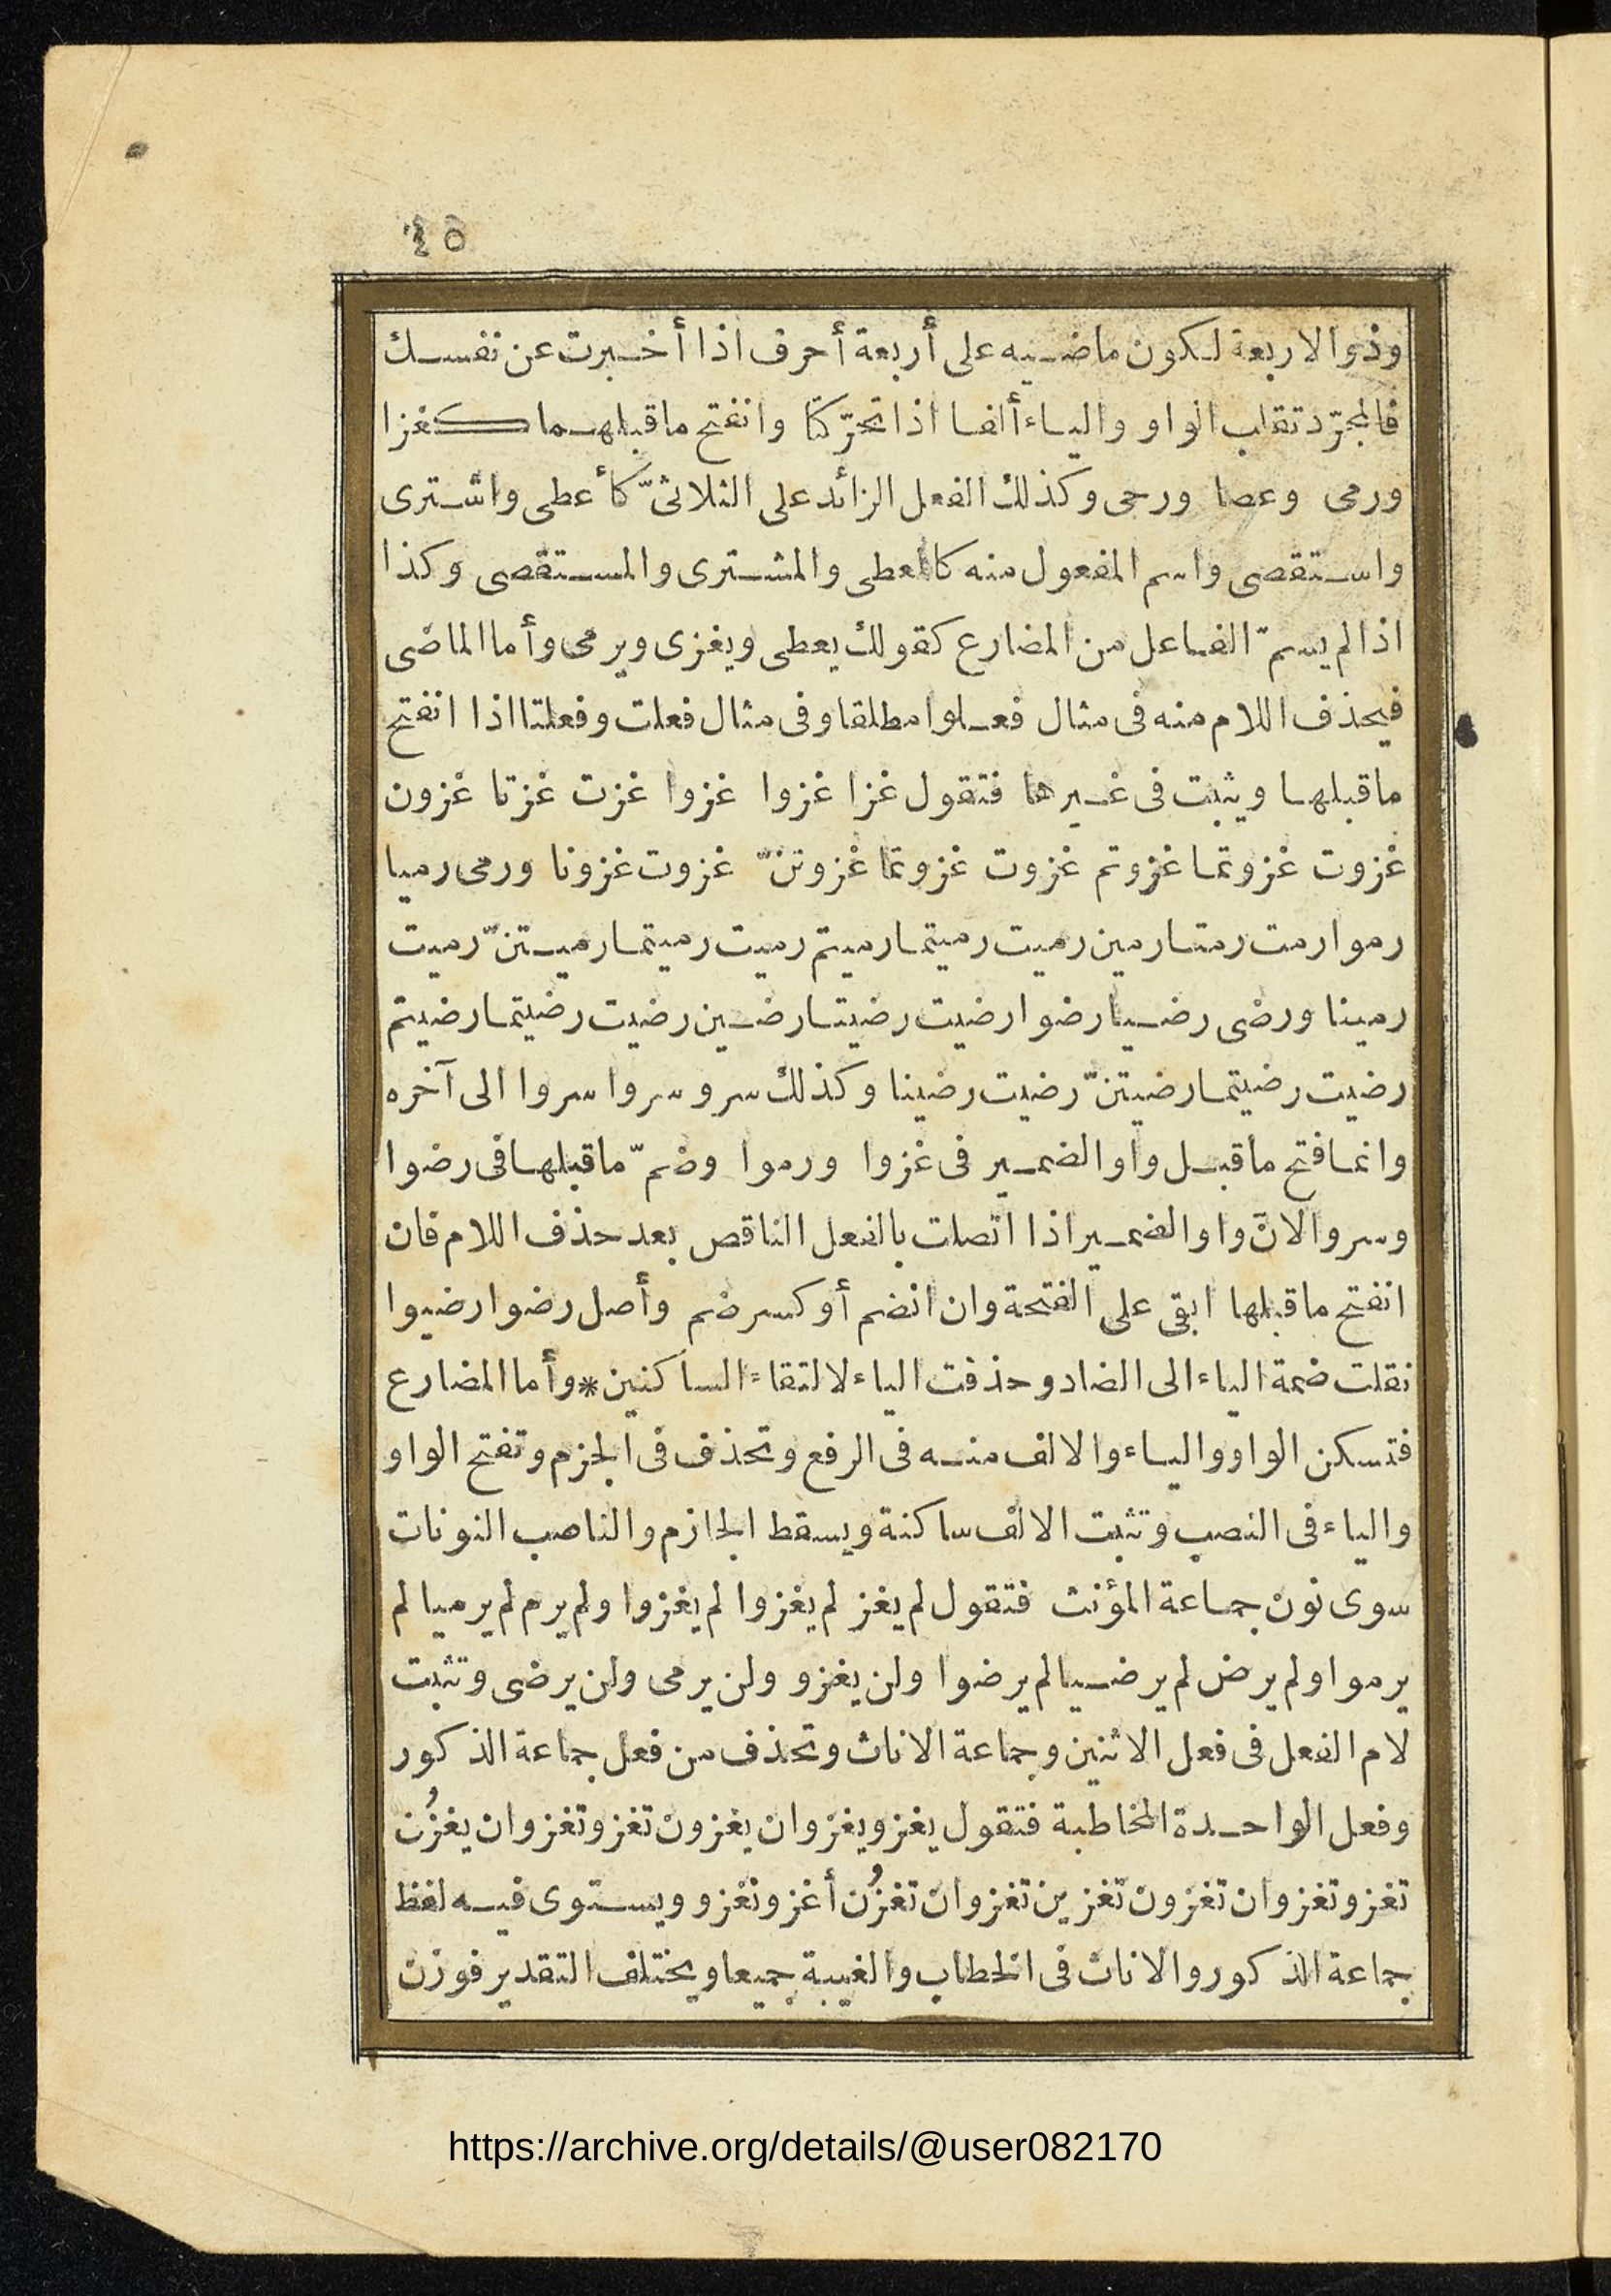 ٤٥
وذو الاربعة لكون ماضيه على أربعة أحرف اذا أخبرت عن نفسك
فالمجرّد تقلب الواو والياء ألفا اذا تحرّكتا وانفتح ماقبلهما كغزا
ورمى وعصا ورحى وكذلك الفعل الزائد على الثلاثىّ كأعطى واشترى
واستقصى واسم المفعول منه كالمعطى والمشترى والمستقصى وكذا
اذا لم يسمّ الفاعل من المضارع كقولك يعطى ويغزى ويرمى وأما الماضى
فيحذف اللام منه فى مثال فعلوا مطلقا وفى مثال فعلت وفعلتا اذا انفتح
ماقبلها ويثبت فى غيرها فتقول غزا غزوا غزوا غزت غزتا غزون
غزوت غزوتما غزوتم غزوت غزوتما غزوتنّ غزوت غزونا ورمى رميا
رموا رمت رمتا رمين رميت رميتما رميتم رميت رميتما رميتنّ رميت
رمينا ورضى رضيا رضوا رضيت رضيتا رضين رضيت رضيتما رضيتم
رضيت رضيتما رضيتنّ رضيت رضينا وكذلك سرو سروا سروا الى آخره
وانما فتح ماقبل واو الضمير فى غزوا ورموا وضمّ ماقبلها فى رضوا
وسروا لانّ واو الضمير اذا اتصلت بالفعل الناقص بعد حذف اللام فان
انفتح ماقبلها ابقى على الفتحة وان انضم أو كسر ضم وأصل رضوا رضيوا
نقلت ضمة الياء الى الضاد وحذفت الياء لالتقاء الساكنين * وأما المضارع
فتسكن الواو والياء والالف منه فى الرفع وتحذف فى الجزم وتفتح الواو
والياء فى النصب وتثبت الالف ساكنة ويسقط الجازم والناصب النونات
سوى نون جماعة المؤنث فتقول لم يغز لم يغزوا لم يغزوا ولم يرم لم يرميا لم
يرموا ولم يرض لم يرضيا لم يرضوا ولن يغزو ولن يرمى ولن يرضى وتثبت
لام الفعل فى فعل الاثنين وجماعة الاناث وتحذف من فعل جماعة الذكور
وفعل الواحدة المخاطبة فتقول يغزو يغزوان يغزون تغزو تغزوان يغزُن
تغزو تغزوان تغزون تغزين تغزوان تغزُن أغزو نغزو ويستوى فيه لفظ
جماعة الذكور والاناث فى الخطاب والغيبة جميعا ويختلف التقدير فوزن
https://archive.org/details/@user082170